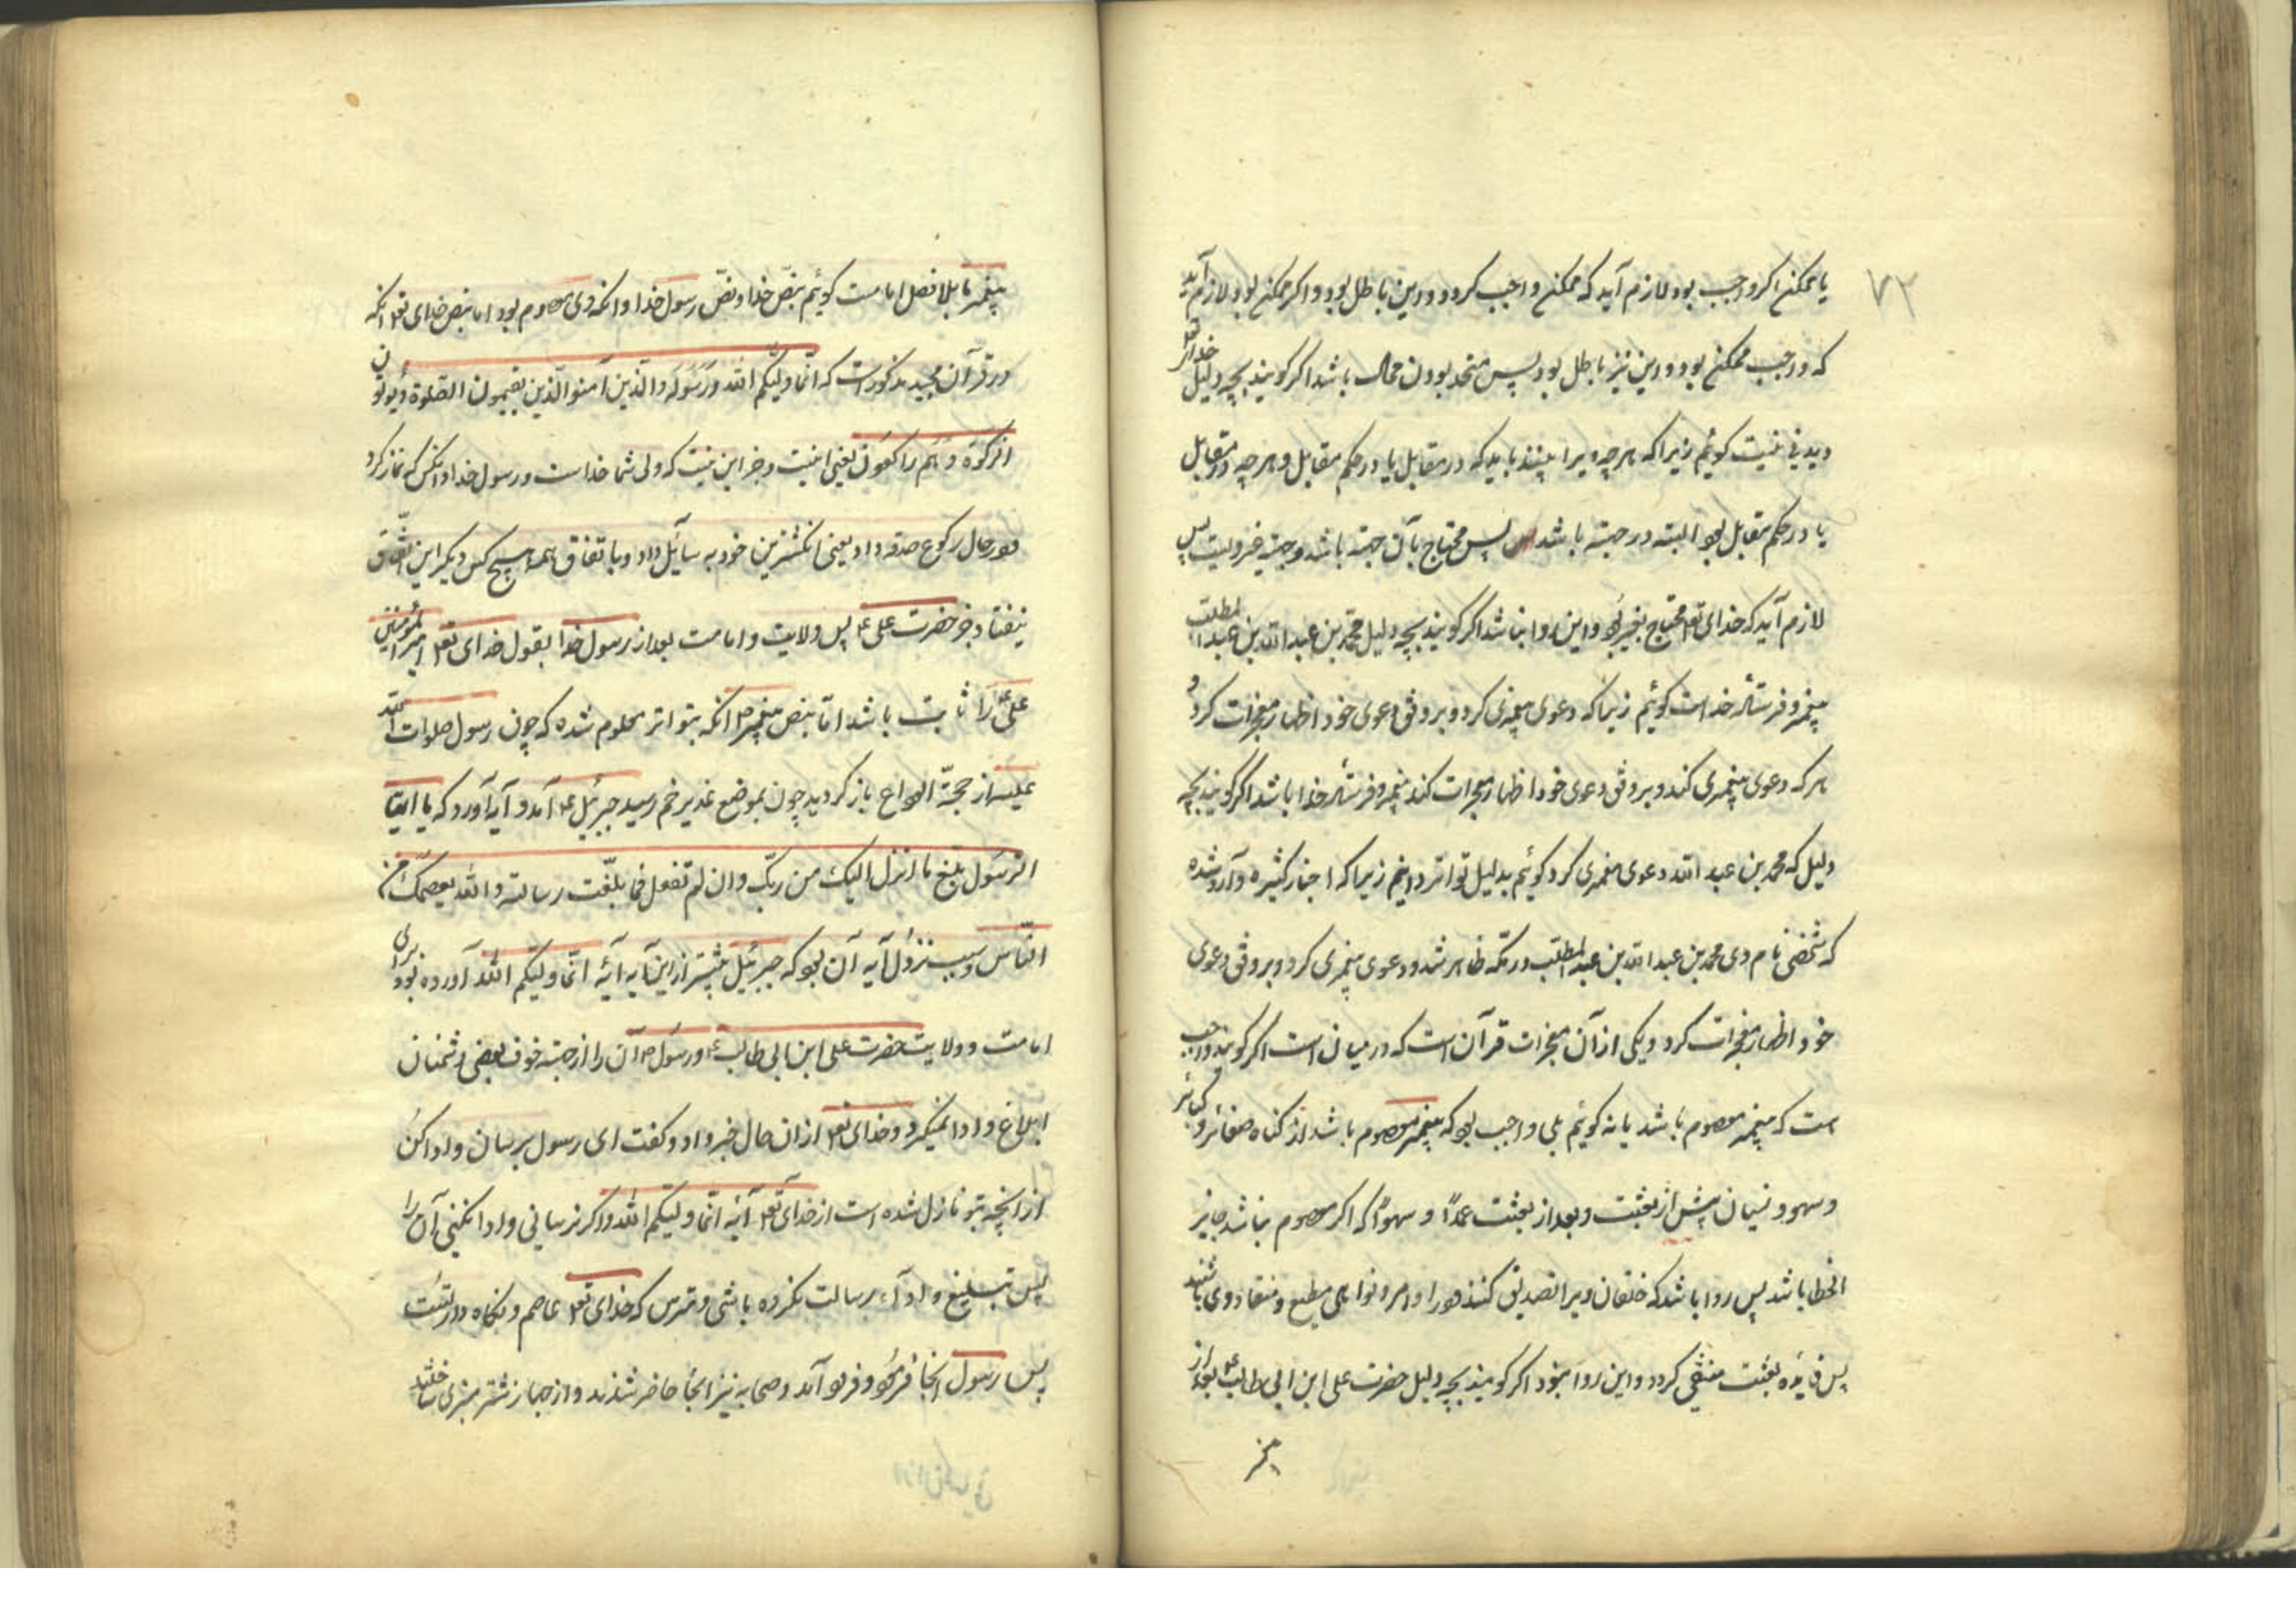 ۷۳
یا ممکن اگر واجب بود لازم آید که ممکن واجب گردد و این باطل بود و اگر ممکن بود لازم آید
که واجب ممکن بود و این نیز باطل بود پس متحد بودن محال باشد اگر گویند بچه دلیل خدای تعه
دیدنی نیست گوئیم زیرا که هرچه ویرا بینند باید که در مقابل یا در حکم مقابل و هرچه در مقابل
یا در حکم مقابل بود البته در جهة باشد پس محتاج بآن جهة باشد و جهة غیر ویست پس
لازم آید که خدای تعه محتاج بغیر بود و این روا نباشد اگر گویند بچه دلیل محمد بن عبد الله بن عبد المطلب
پیغمبر و فرستاده خداست گوئیم زیرا که دعوی پیغمبری کرد و بر وفق دعوی خود اظهار معجزات کرد و
هر که دعوی پیغمبری کند و بر وفق دعوی خود اظهار معجزات کند پیغمبر و فرستاده خدا باشد اگر گویند بچه
دلیل که محمد بن عبد الله دعوی پیغمبری کرد گوئیم بدلیل تواتر دانیم زیرا که اخبار کثیره وارد شده
که شخصی نام وی محمد بن عبد الله بن عبد المطلب در مکه ظاهر شد و دعوی پیغمبری کرد و بر وفق دعوی
خود اظهار معجزات کرد و یکی از آن معجزات قرآن است که در میان است اگر گویند واجب
است که پیغمبر معصوم باشد یا نه گوئیم بلی واجب بود که پیغمبر معصوم باشد از گناه صغائر و کبائر
و سهو و نسیان پیش از بعثت و بعد از بعثت عمداً و سهواً که اگر معصوم نباشد جایز
الخطا باشد پس روا باشد که خلقان ویرا تصدیق کنند و در اوامر و نواهی مطیع و منقاد وی باشند
پس فایده بعثت منتفی گردد و این روا نبود اگر گویند بچه دلیل حضرت علی ابن ابی طالب ع بعد از
پیغمبر
پیغمبر ما بلا فصل امامت گوئیم بنص خدا و نص رسول خدا و آنکه وی معصوم بود اما بنص خدای تعه آنکه
در قرآن مجید مذکور است که انّما ولیّکم الله ورسوله والّذین آمنوا الّذین یقیمون الصّلوة ویؤتون
الزکوة وهم راکعون یعنی اینست و جز این نیست که ولی شما خداست و رسول خدا و آنکس که نماز کرد
و در حال رکوع صدقه داد یعنی انگشترین خود به سایل داد و باتفاق همه هیچ کس دیگر این اتّفاق
نیفتاد جز حضرت علی ع پس ولایت و امامت بعد از رسول خدا بقول خدای تعه امیر المؤمنین
علیّ را ثابت باشد امّا بنص پیغمبر ص آنکه بتواتر معلوم شده که چون رسول صلوات الله
علیه از حجّة الوداع باز گردید چون بموضع غدیر خم رسید جبرئیل ع آمد و آیه آورد که یا ایّها
الرّسول بلّغ ما انزل الیک من ربّک وان لم تفعل فما بلّغت رسالته والله یعصمک من
النّاس و سبب نزول آیه آن بود که جبرئیل بیشتر از این آیه آیهٔ انّما ولیّکم الله آورده بود برای
امامت و ولایت حضرت علی ابن ابی طالب ع و رسول ص آن را از جهة خوف بعضی دشمنان
ابلاغ و ادا نمیکرد و خدای تعه از ان حال خبر داد و گفت ای رسول برسان و ادا کن
از آنچه بتو نازل شده است از خدای تعه آیهٔ انّما ولیّکم الله و اگر نرسانی و ادا نکنی آن را
پس تبلیغ و اداء رسالت نکرده باشی و مترس که خدای تعه عاصم و نگاه دار تست
پس رسول آنجا فرمود و فرود آمد و صحابه نیز آنجا حاضر شدند و از جهاز شتر منبری ساختند